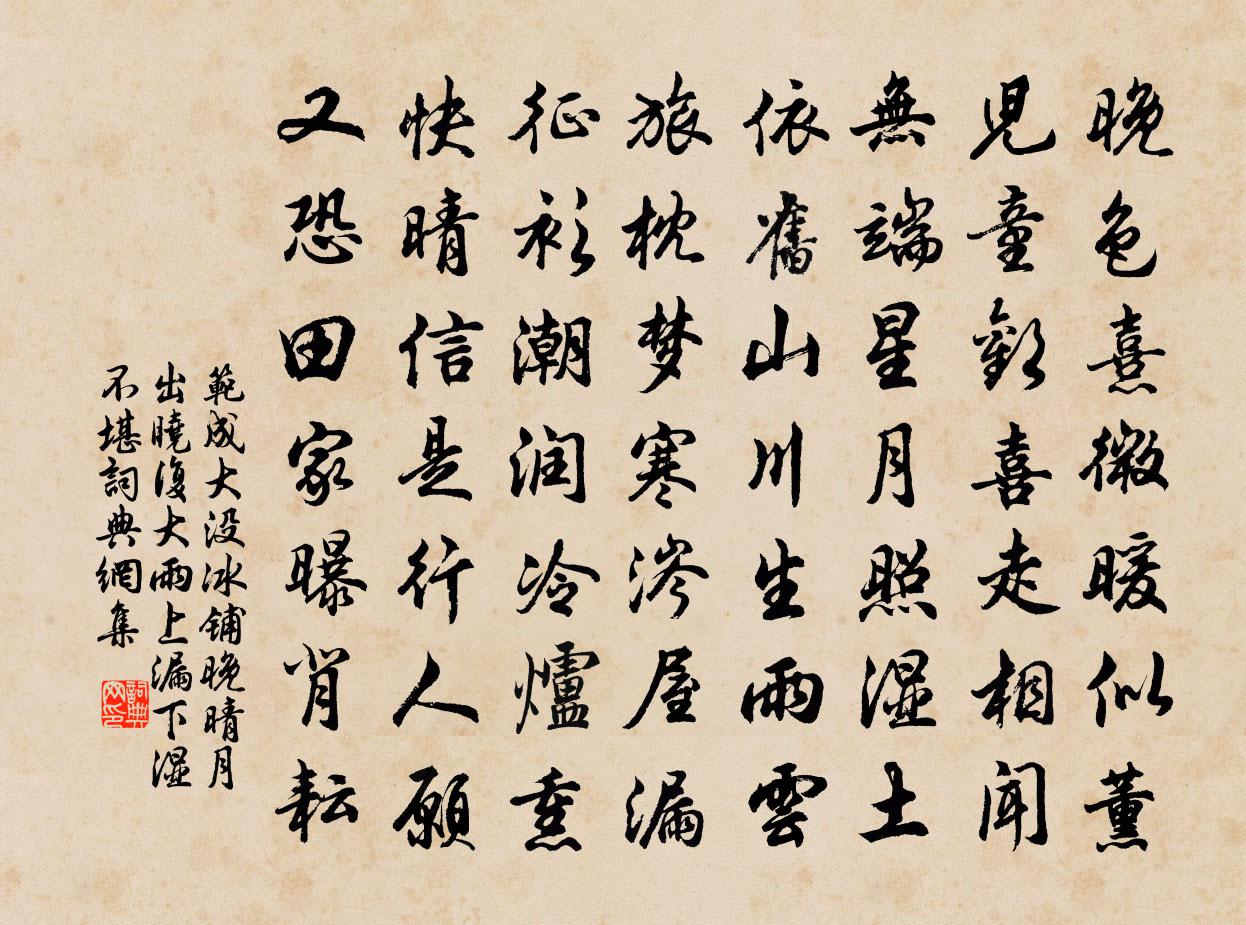 晚色熹微暖似薰
児童歡喜走相聞
無端星月照湿土
依舊山川生雨雲
旅枕梦寒涔屋漏
征衫潮润冷爐熏
快晴信是行人願
又恐田家曝背耘
範成大没冰铺晚晴月
出曉復大雨上漏下湿
不堪詞典網集
詞典网印